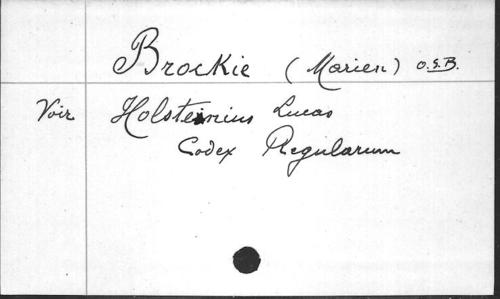 Brockie (Marien) O.S.B.
Voir Holsteinius Lucas
Codex Regularum